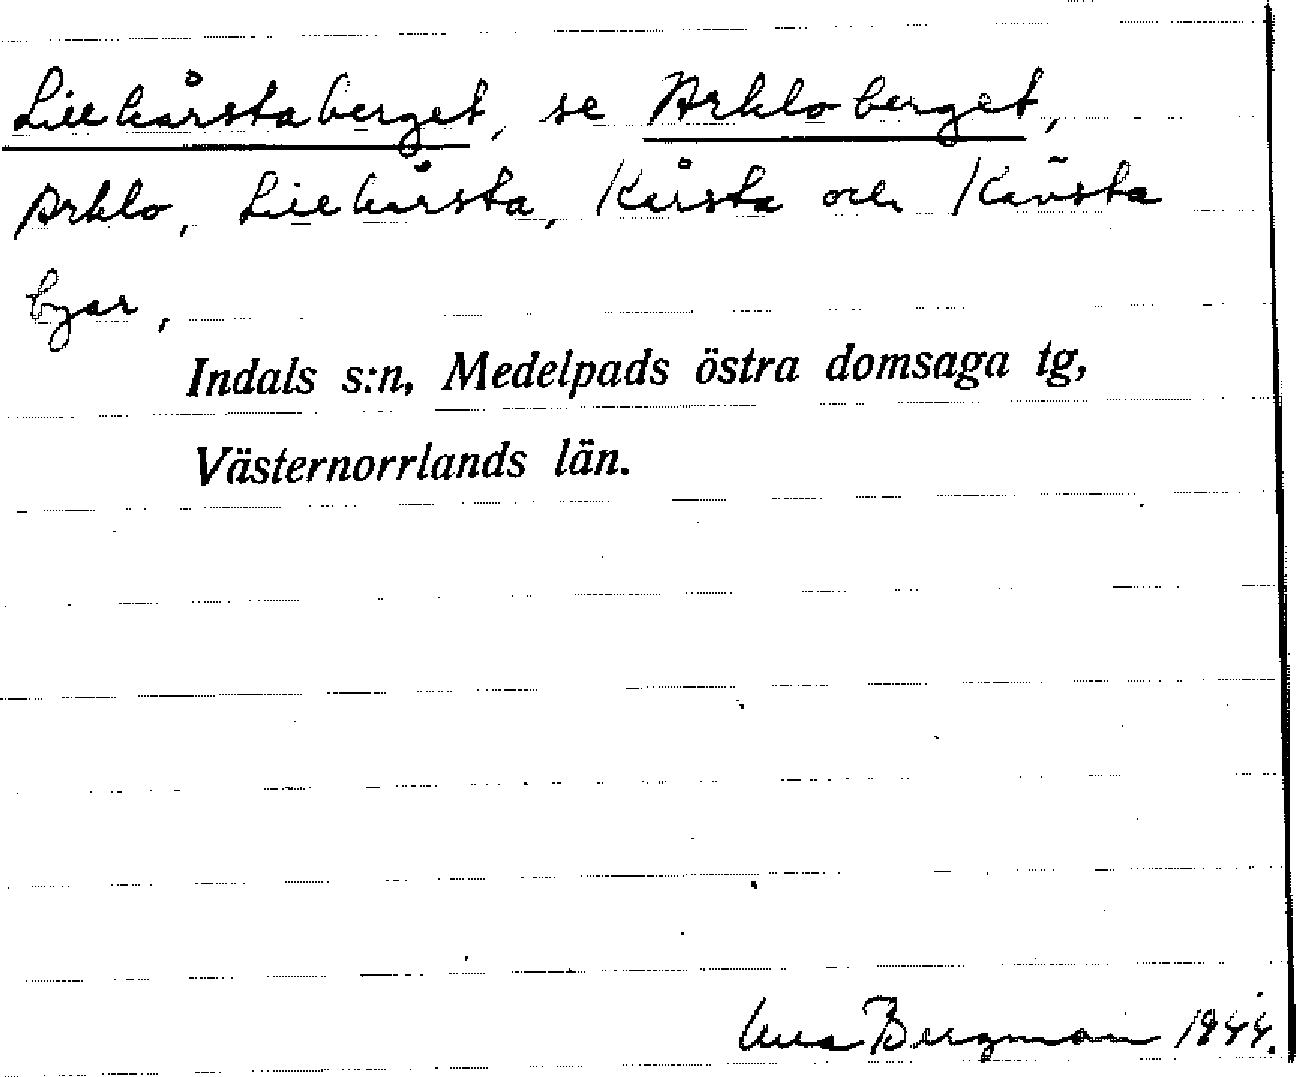 Lillkårstaberget, se Arkloberget,
Arklo, Lillkårsta, Kårsta och Kävsta
byar,
Indals s:n, Medelpads östra domsaga tg,
Västernorrlands län.
Bergman 1944.